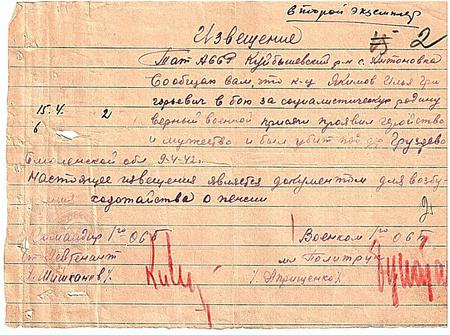 второй экземпляр
Извещение
2
Тат АССР Куйбышевский р-н с. Антоновка
Сообщаю вам, что к-ц Якимов Илья Гри
горьевич в бою за социалистическую родину
15.4. 2
верный военной присяги проявил геройство
6
и мужество и был убит под д. Груздево
Смоленской обл 9-4-42г.
Настоящее извещения является документом для возбу
ния ходотайства о пенсии
Командир 1го ОСБ
Военком 1го ОСБ
ст Лейтенант
мл Политрук
/Мишканов/.
/Априщенко/.